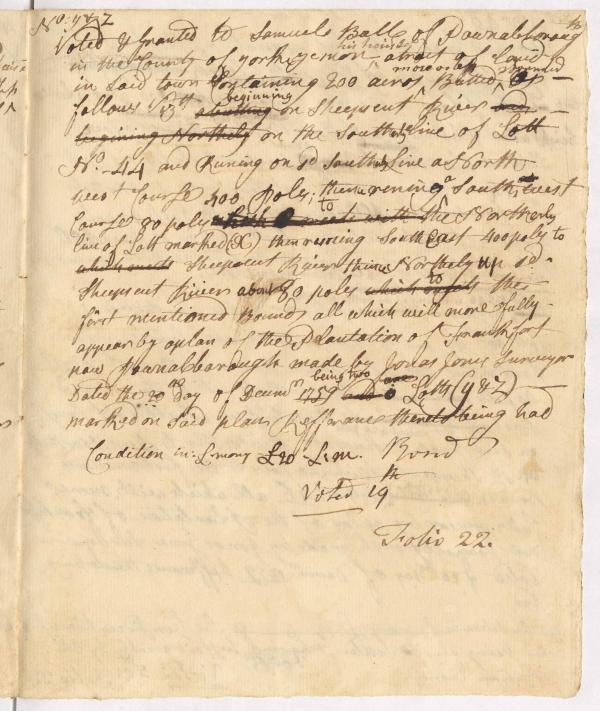 No: y & z
Voted & Granted to Samuel Ball of Pownalborong
in the County of york yemon his heirs a tract of land
in Said town Containing 200 acres more or less Butted & Bounded as
follows Viz beginning abutting on Sheepscut River and
begining Northely on the Southly line of Lott
No. 44 and Runing on sd Southly line a North
west Course 400 poles; thence rening a South west
Course 80 poles to which meets with the Northerly
line of Lott marked (X) then rening South East 400 poles to
which meets Sheepscut River thence Northely up sd
Sheepscut River about 80 poles which to the
first mentioned Bounds all which will more fully
appear by a plan of the Plantation of Frankfort
now Pownalborough made by Jonas Jones Surveyor
Dated the 20th day of Decemr 1759 being two Lotts (y & z)
marked on Said plan Refferance thereto being had
Condition in: Comon L20 L.m. Bond
Voted 19th
Folio 22.